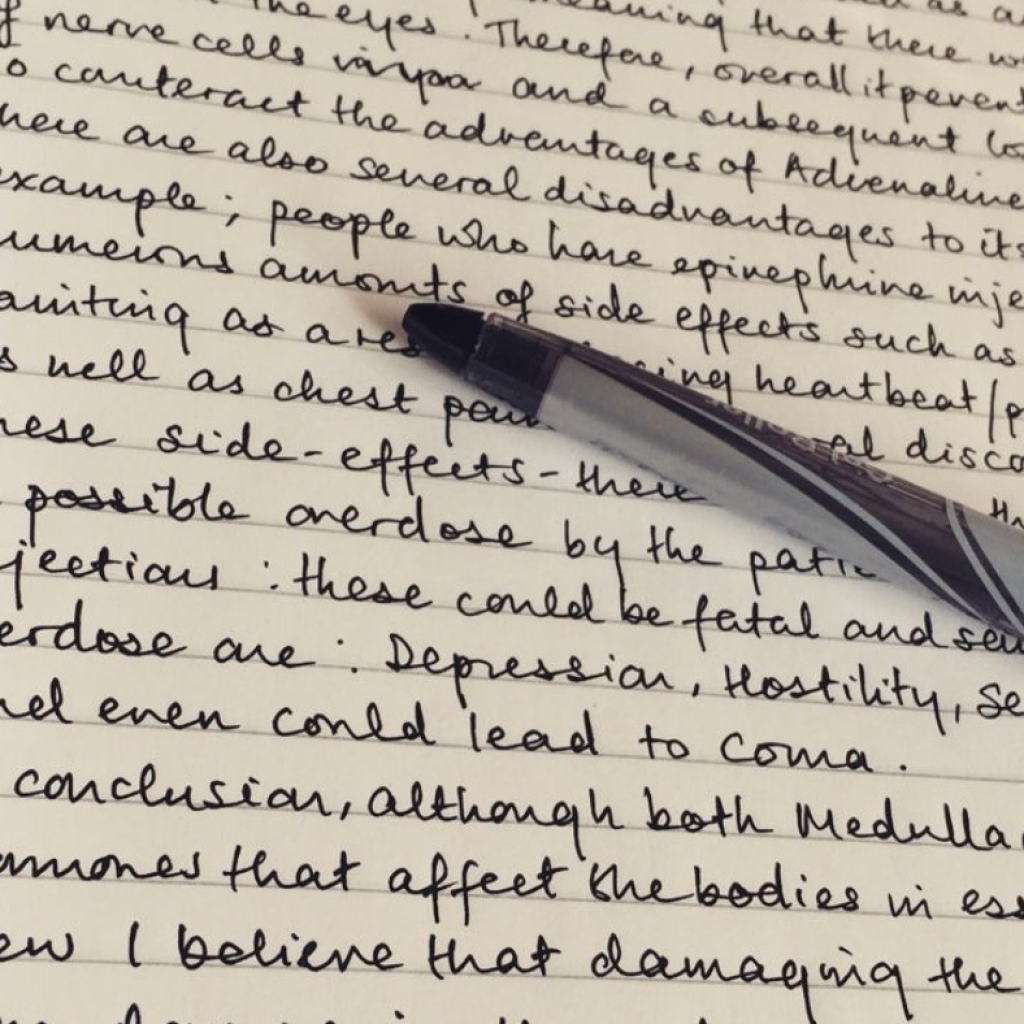 the eyes. meaning that there
nerve cells and a subsequent
counteract the advantages of Adrenaline
here are also several disadvantages to its
example; people who have epinephrine inje
umerous amounts of side effects such as
as a res heartbeat/p
s well as chest disco
hese side-effects - there
possible overdose by the pati
jections : these could be fatal and
erdose are : Depression, Hostility, Se
nd even could lead to coma.
conclusion, although both Medulla
that affect the bodies in ess
ew I believe that damaging the